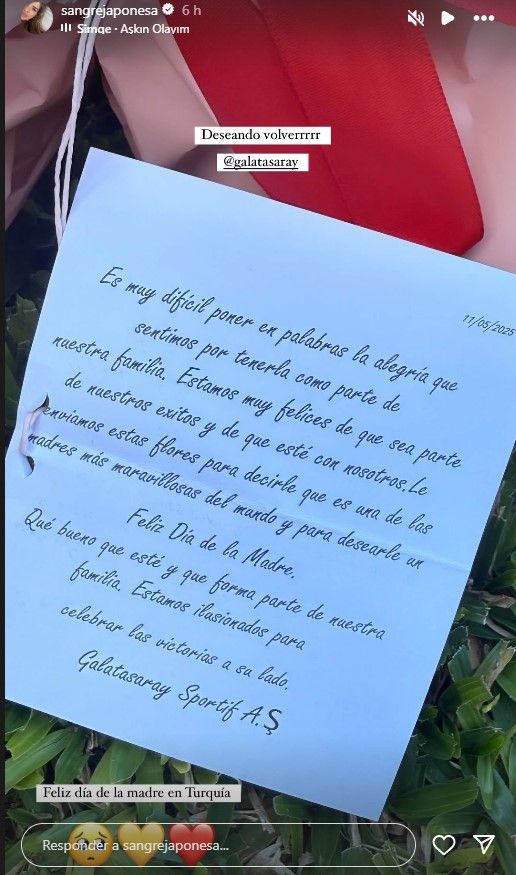 sangrejaponesa 6 h
Simge · Aşkın Olayım
Deseando volverrrrr
@galatasaray
11/05/2025
Es muy difícil poner en palabras la alegría que
sentimos por tenerla como parte de
nuestra familia. Estamos muy felices de que sea parte
de nuestros exitos y de que esté con nosotros.Le
enviamos estas flores para decirle que es una de las
madres más maravillosas del mundo y para desearle un
Feliz Día de la Madre.
Qué bueno que esté y que forma parte de nuestra
familia. Estamos ilusionados para
celebrar las victorias a su lado.
Galatasaray Sportif A.Ş
Feliz día de la madre en Turquía
Responder a sangrejaponesa...